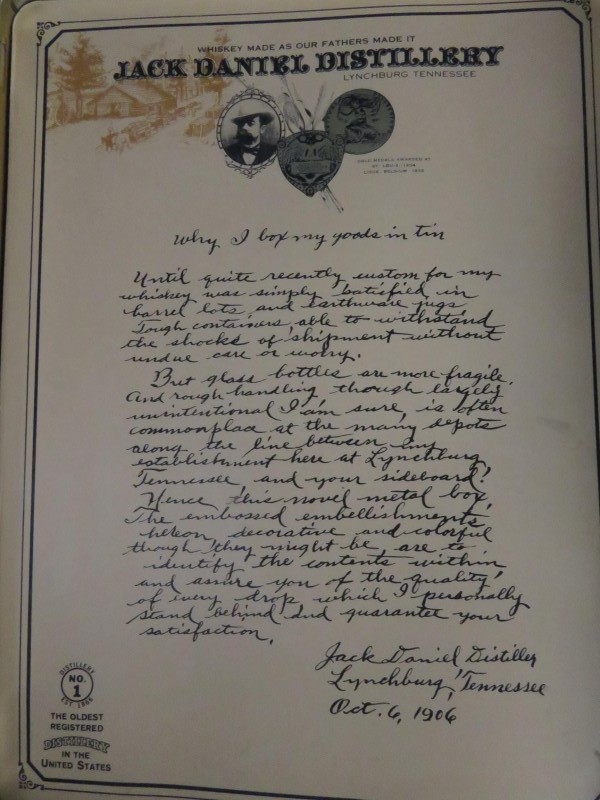 WHISKEY MADE AS OUR FATHERS MADE IT
JACK DANIEL DISTILLERY
LYNCHBURG TENNESSEE
GOLD MEDALS AWARDED AT
ST. LOUIS, 1904
LIEGE BELGIUM, 1905
Why I box my goods in tin
Until quite recently custom for my
whiskey was simply satisfied in
barrel lots and earthware jugs
Tough containers able to withstand
the shocks of shipment without
undue care or worry.
But glass bottles are more fragile.
And rough handling though largely
unintentional I am sure, is often
commonplace at the many depots
along the line between my
establishment here at Lynchburg,
Tennessee, and your sideboard!
Hence this novel metal box.
The embossed embellishments
hereon decorative and colorful
though they might be, are to
identify the contents within
and assure you of the quality
of every drop which I personally
stand behind and guarantee your
satisfaction.
Jack Daniel Distiller
Lynchburg, Tennessee
Oct. 6, 1906
DISTILLERY
NO.
1
EST. 1866
THE OLDEST
REGISTERED
DISTILLERY
IN THE
UNITED STATES